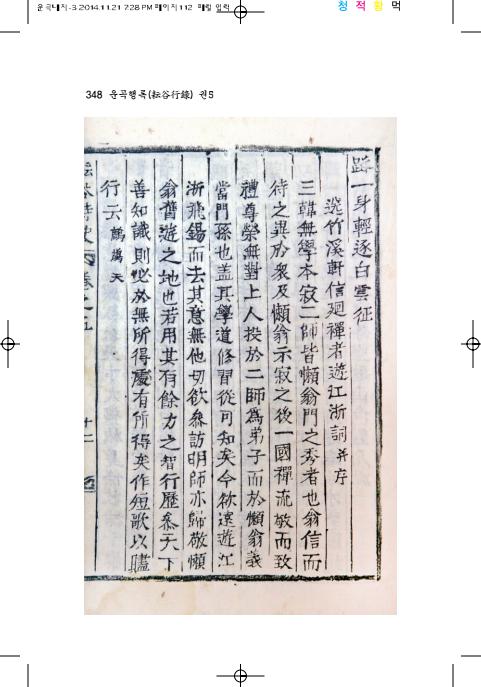 윤곡내지-3 2014.11.21 7:28 PM 페이지112 매립 입력
청 적 황 먹
348 운곡행록(耘谷行錄) 권5
蹤一身輕逐白雲征
送竹溪軒信廻禪者遊江浙詞并序
三韓無學本寂二師皆懶翁門之秀者也翁信而
待之異於衆及懶翁示寂之後一國禪流敬而致
禮尊榮無對上人投於二師爲弟子而於懶翁義
當門孫也盖其學道修習從可知矣今欲遠遊江
浙飛錫而去其意無他切欲叅訪明師亦歸敬懶
翁舊遊之地也若用其有餘力之智行歷叅天下
善知識則必於無所得處有所得矣作短歌以贐
行云
耘谷詩史 卷之五 十二